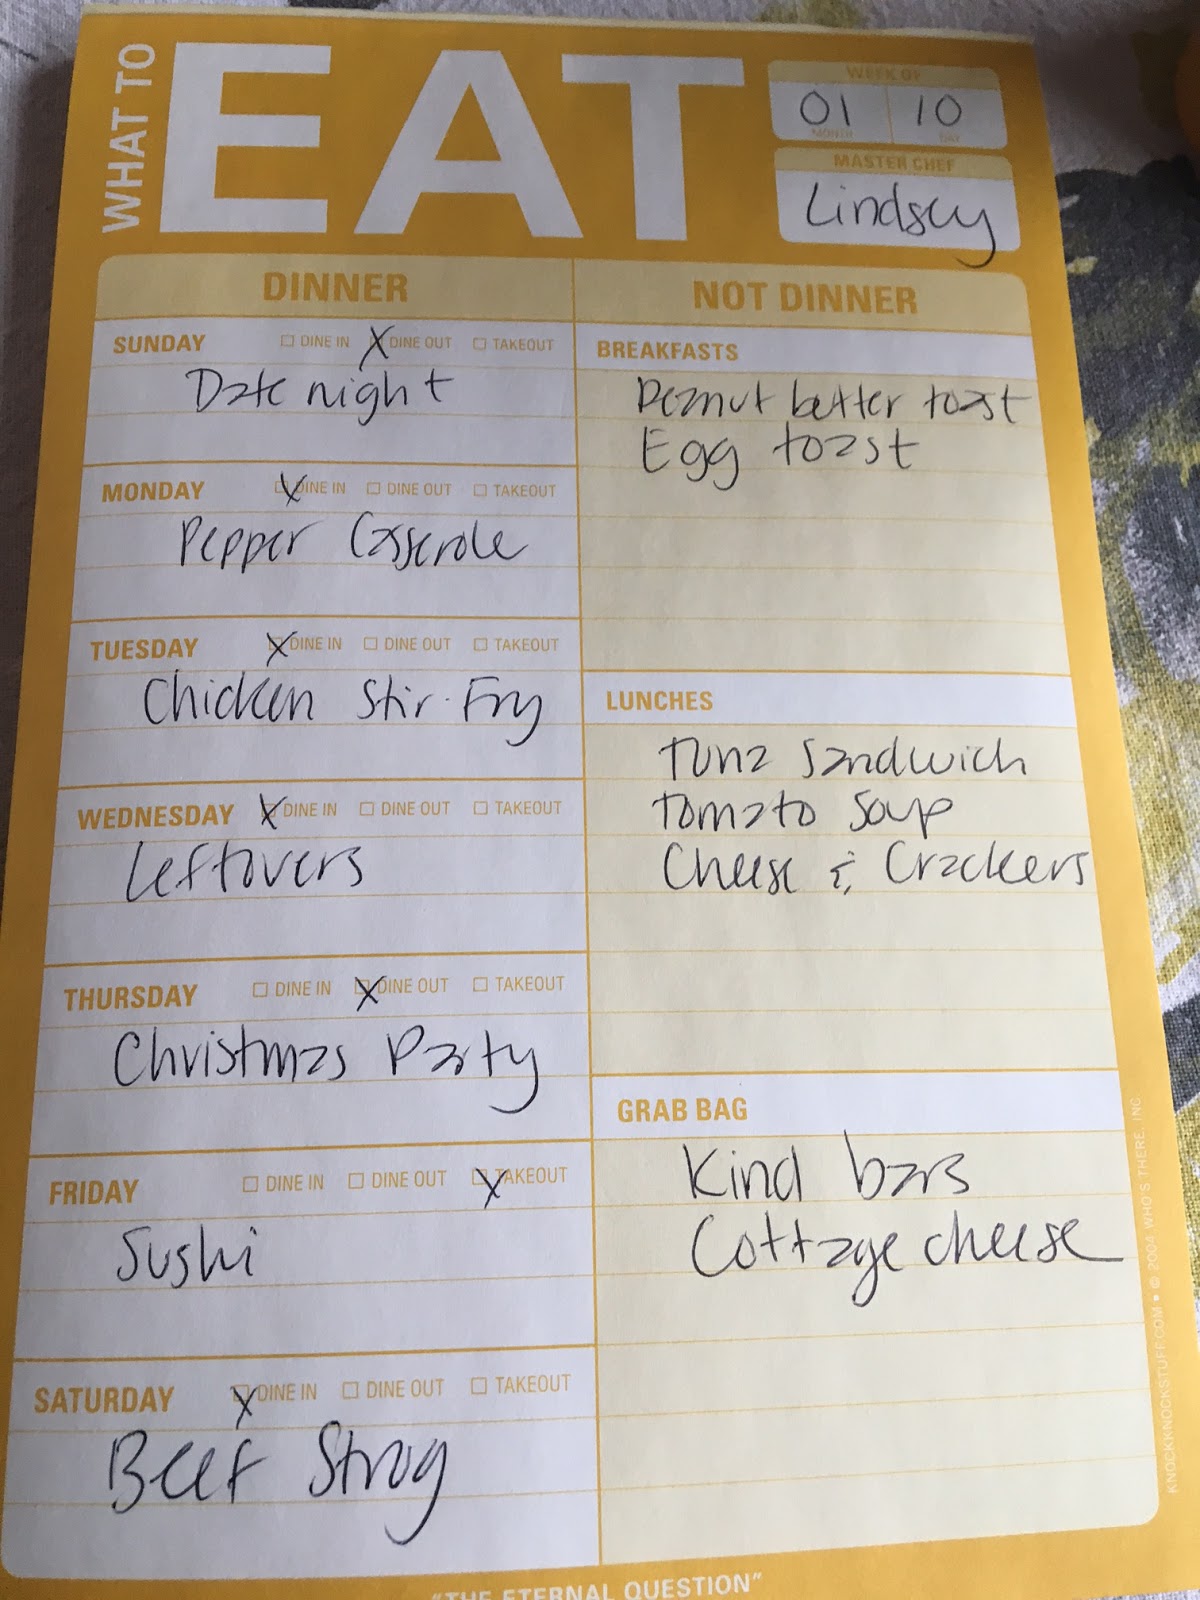 WHAT TO
EAT
WEEK OF
01 10
MONTH DAY
MASTER CHEF
Lindsey
DINNER
SUNDAY DINE IN DINE OUT TAKEOUT
Date night
MONDAY DINE IN DINE OUT TAKEOUT
Pepper Casserole
TUESDAY DINE IN DINE OUT TAKEOUT
Chicken Stir-Fry
WEDNESDAY DINE IN DINE OUT TAKEOUT
Leftovers
THURSDAY DINE IN DINE OUT TAKEOUT
Christmas Party
FRIDAY DINE IN DINE OUT TAKEOUT
Sushi
SATURDAY DINE IN DINE OUT TAKEOUT
Beef Strog
NOT DINNER
BREAKFASTS
Peanut butter toast
Egg toast
LUNCHES
Tuna Sandwich
Tomato Soup
Cheese & Crackers
GRAB BAG
Kind bars
Cottage cheese
KNOCKKNOCKSTUFF.COM • © 2004 WHO'S THERE, INC.
"THE ETERNAL QUESTION"